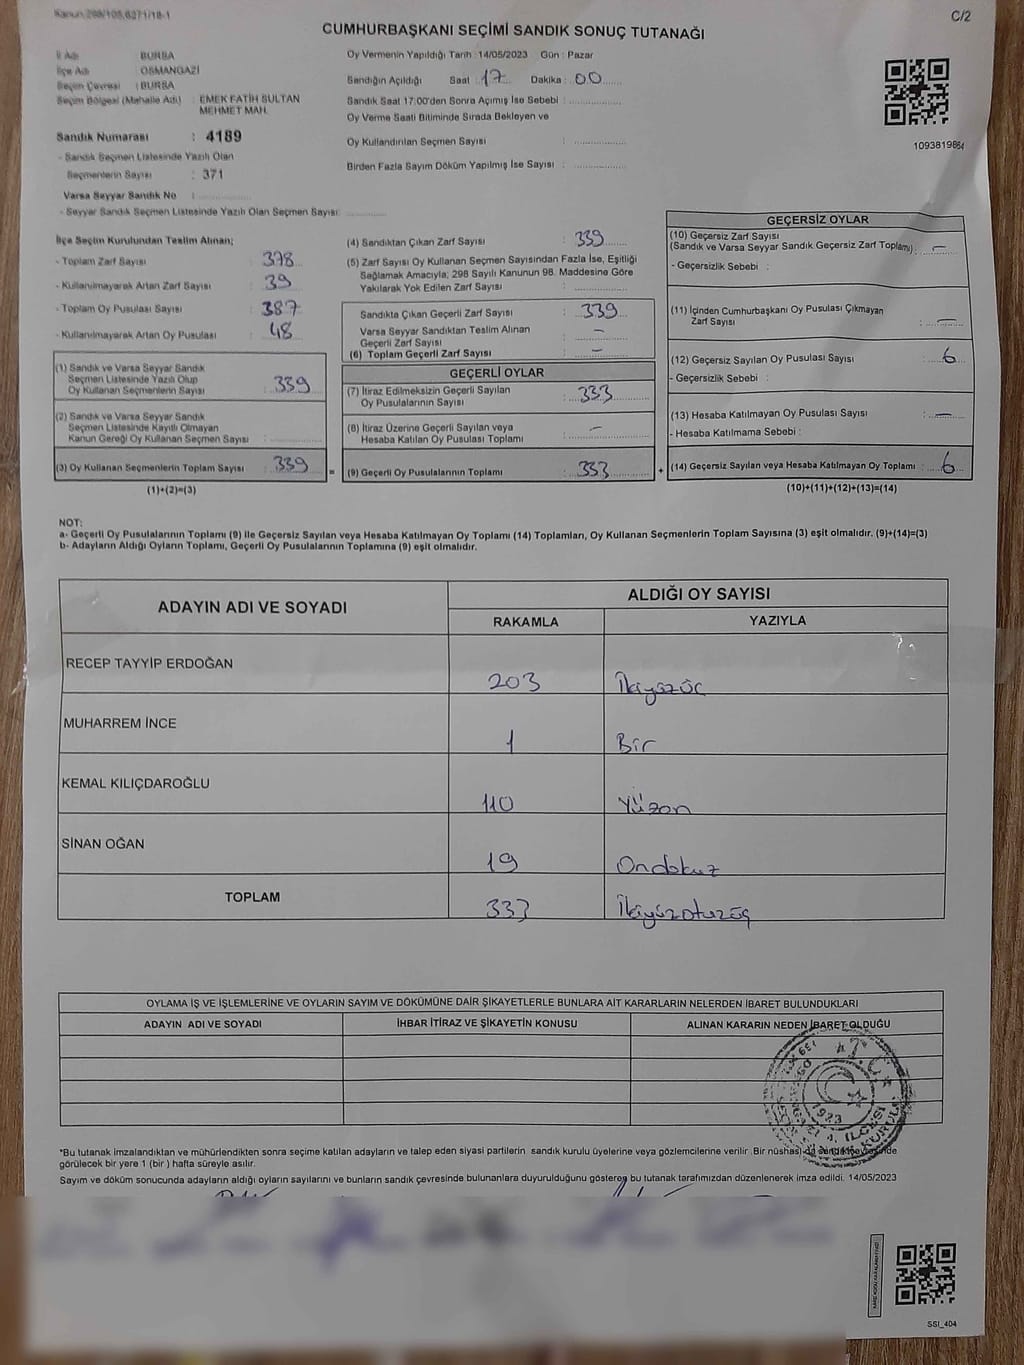 Kanun:298/105,6271/18-1
C/2
CUMHURBAŞKANI SEÇİMİ SANDIK SONUÇ TUTANAĞI
İl Adı : BURSA
İlçe Adı : OSMANGAZİ
Seçim Çevresi : BURSA
Seçim Bölgesi (Mahalle Adı) : EMEK FATİH SULTAN
MEHMET MAH.
Sandık Numarası : 4189
- Sandık Seçmen Listesinde Yazılı Olan
Seçmenlerin Sayısı : 371
Varsa Seyyar Sandık No :
- Seyyar Sandık Seçmen Listesinde Yazılı Olan Seçmen Sayısı:
Oy Vermenin Yapıldığı Tarih : 14/05/2023 Gün : Pazar
Sandığın Açıldığı Saat : 17 Dakika : 00
Sandık Saat 17:00'den Sonra Açımış İse Sebebi :
Oy Verme Saati Bitiminde Sırada Bekleyen ve
Oy Kullandırılan Seçmen Sayısı :
Birden Fazla Sayım Döküm Yapılmış İse Sayısı :
1093819864
İlçe Seçim Kurulundan Teslim Alınan;
- Toplam Zarf Sayısı : 378
- Kullanılmayarak Artan Zarf Sayısı : 39
- Toplam Oy Pusulası Sayısı : 387
- Kullanılmayarak Artan Oy Pusulası : 48
(1) Sandık ve Varsa Seyyar Sandık
Seçmen Listesinde Yazılı Olup
Oy Kullanan Seçmenlerin Sayısı : 339
(2) Sandık ve Varsa Seyyar Sandık
Seçmen Listesinde Kayıtlı Olmayan
Kanun Gereği Oy Kullanan Seçmen Sayısı :
(3) Oy Kullanan Seçmenlerin Toplam Sayısı : 339
(1)+(2)=(3)
(4) Sandıktan Çıkan Zarf Sayısı : 339
(5) Zarf Sayısı Oy Kullanan Seçmen Sayısından Fazla İse, Eşitliği
Sağlamak Amacıyla; 298 Sayılı Kanunun 98. Maddesine Göre
Yakılarak Yok Edilen Zarf Sayısı :
Sandıkta Çıkan Geçerli Zarf Sayısı : 339
Varsa Seyyar Sandıktan Teslim Alınan
Geçerli Zarf Sayısı : –
(6) Toplam Geçerli Zarf Sayısı : –
=
GEÇERLİ OYLAR
(7) İtiraz Edilmeksizin Geçerli Sayılan
Oy Pusulalarının Sayısı : 333
(8) İtiraz Üzerine Geçerli Sayılan veya
Hesaba Katılan Oy Pusulası Toplamı : –
(9) Geçerli Oy Pusulalarının Toplamı : 333
+
GEÇERSİZ OYLAR
(10) Geçersiz Zarf Sayısı
(Sandık ve Varsa Seyyar Sandık Geçersiz Zarf Toplamı) : –
- Geçersizlik Sebebi :
(11) İçinden Cumhurbaşkanı Oy Pusulası Çıkmayan
Zarf Sayısı : –
(12) Geçersiz Sayılan Oy Pusulası Sayısı : 6
- Geçersizlik Sebebi :
(13) Hesaba Katılmayan Oy Pusulası Sayısı : –
- Hesaba Katılmama Sebebi :
(14) Geçersiz Sayılan veya Hesaba Katılmayan Oy Toplamı : 6
(10)+(11)+(12)+(13)=(14)
NOT:
a- Geçerli Oy Pusulalarının Toplamı (9) ile Geçersiz Sayılan veya Hesaba Katılmayan Oy Toplamı (14) Toplamları, Oy Kullanan Seçmenlerin Toplam Sayısına (3) eşit olmalıdır. (9)+(14)=(3)
b- Adayların Aldığı Oyların Toplamı, Geçerli Oy Pusulalarının Toplamına (9) eşit olmalıdır.
ADAYIN ADI VE SOYADI
ALDIĞI OY SAYISI
RAKAMLA YAZIYLA
RECEP TAYYİP ERDOĞAN 203 İkiyüzüç
MUHARREM İNCE 1 Bir
KEMAL KILIÇDAROĞLU 110 Yüzon
SİNAN OĞAN 19 Ondokuz
TOPLAM 333 İkiyüzotuzüç
OYLAMA İŞ VE İŞLEMLERİNE VE OYLARIN SAYIM VE DÖKÜMÜNE DAİR ŞİKAYETLERLE BUNLARA AİT KARARLARIN NELERDEN İBARET BULUNDUKLARI
ADAYIN ADI VE SOYADI İHBAR İTİRAZ VE ŞİKAYETİN KONUSU ALINAN KARARIN NEDEN İBARET OLDUĞU
T.C.
1923
*Bu tutanak imzalandıktan ve mühürlendikten sonra seçime katılan adayların ve talep eden siyasi partilerin sandık kurulu üyelerine veya gözlemcilerine verilir. Bir nüshası da
görülecek bir yere 1 (bir ) hafta süreyle asılır.
Sayım ve döküm sonucunda adayların aldığı oyların sayılarını ve bunların sandık çevresinde bulunanlara duyurulduğunu gösteren bu tutanak tarafımızdan düzenlenerek imza edildi. 14/05/2023
SSI_404